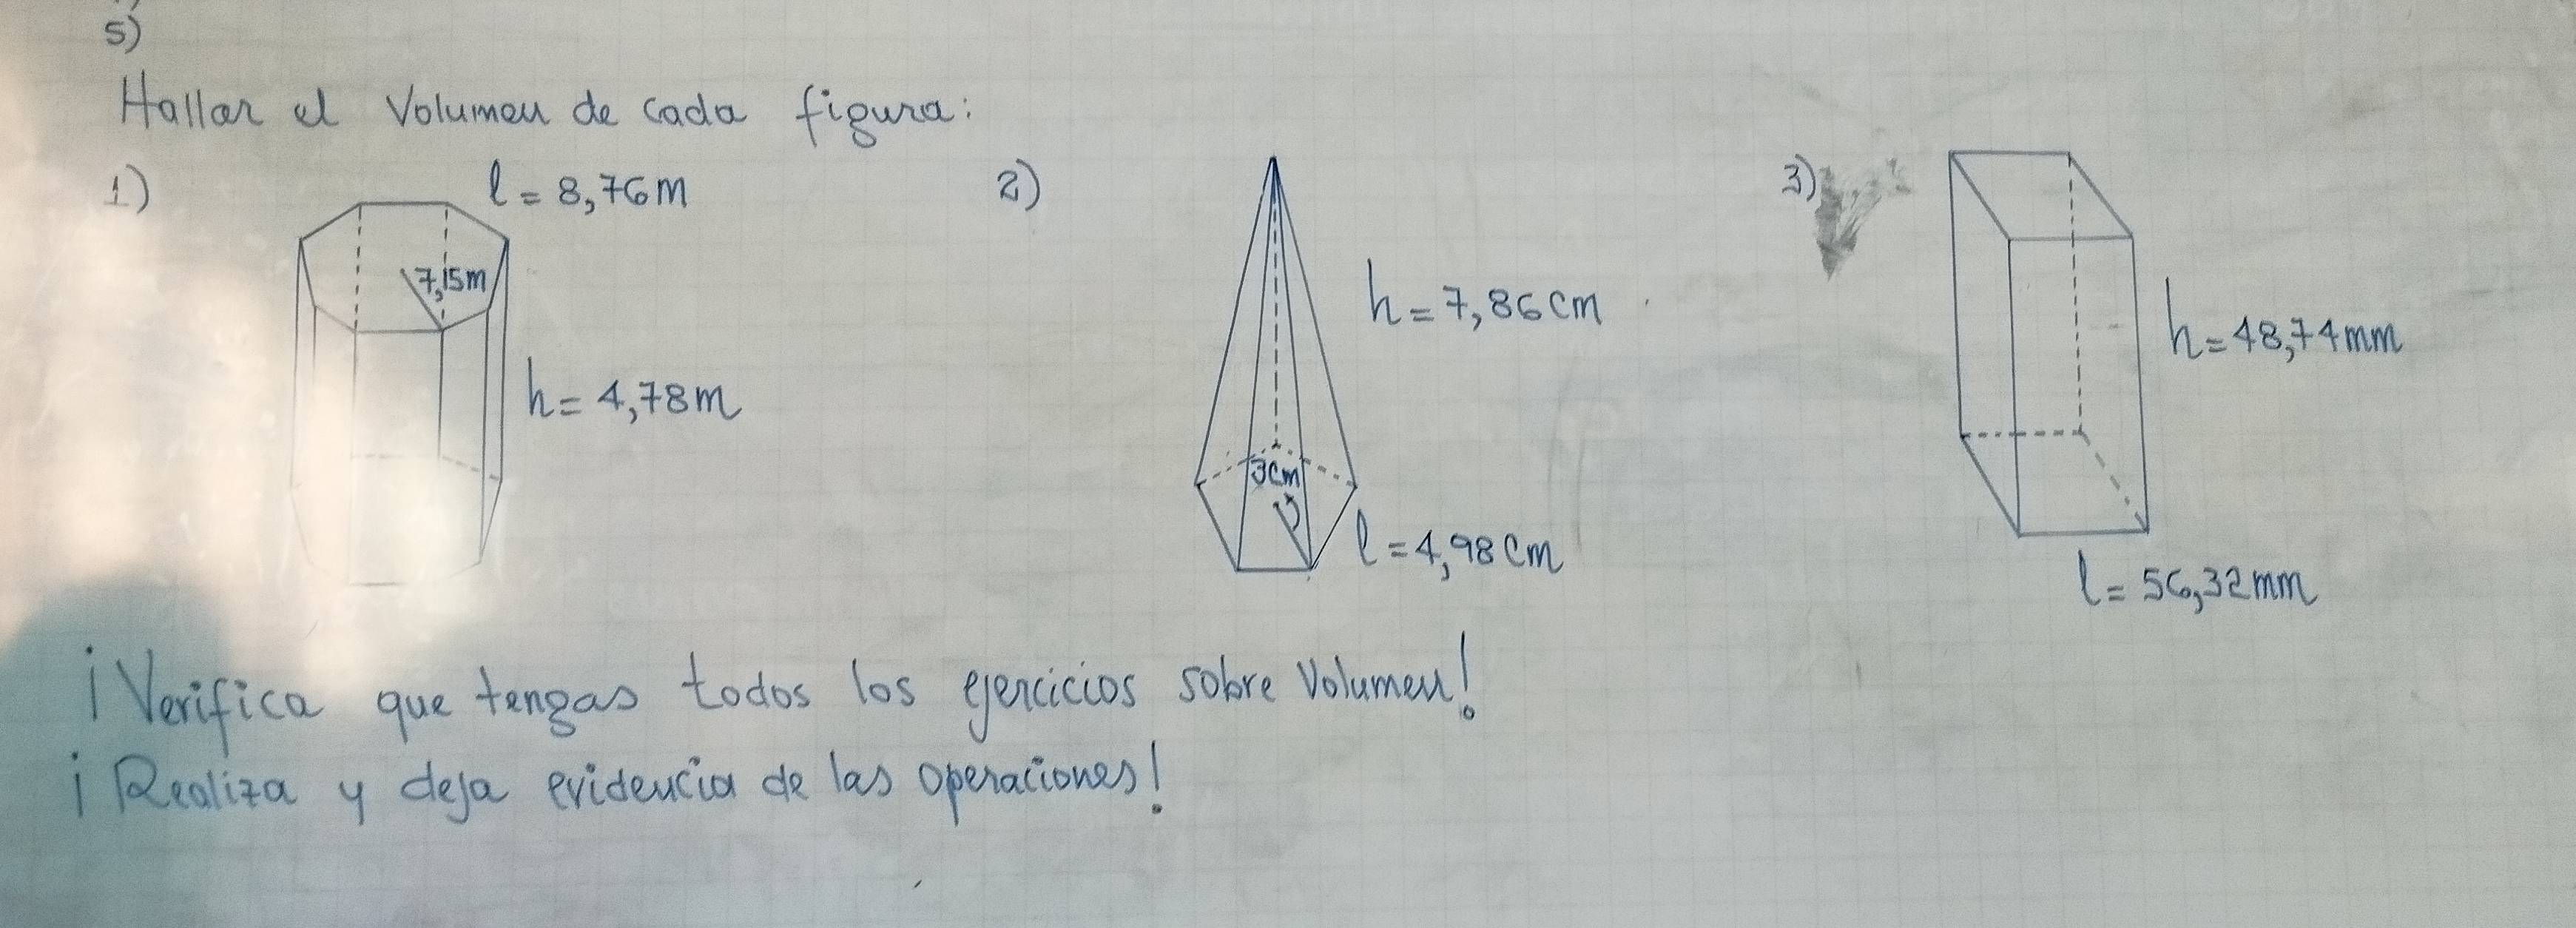 5)
Hallar el Volumen de cada figura:
1)
l = 8,76m
7,15m
h = 4,78m
2)
h = 7,86cm
3cm
l = 4,98cm
3)
h = 48,74mm
l = 56,32mm
¡Verifica que tengas todos los ejercicios sobre Volumen!
¡Realiza y deja evidencia de las operaciones!